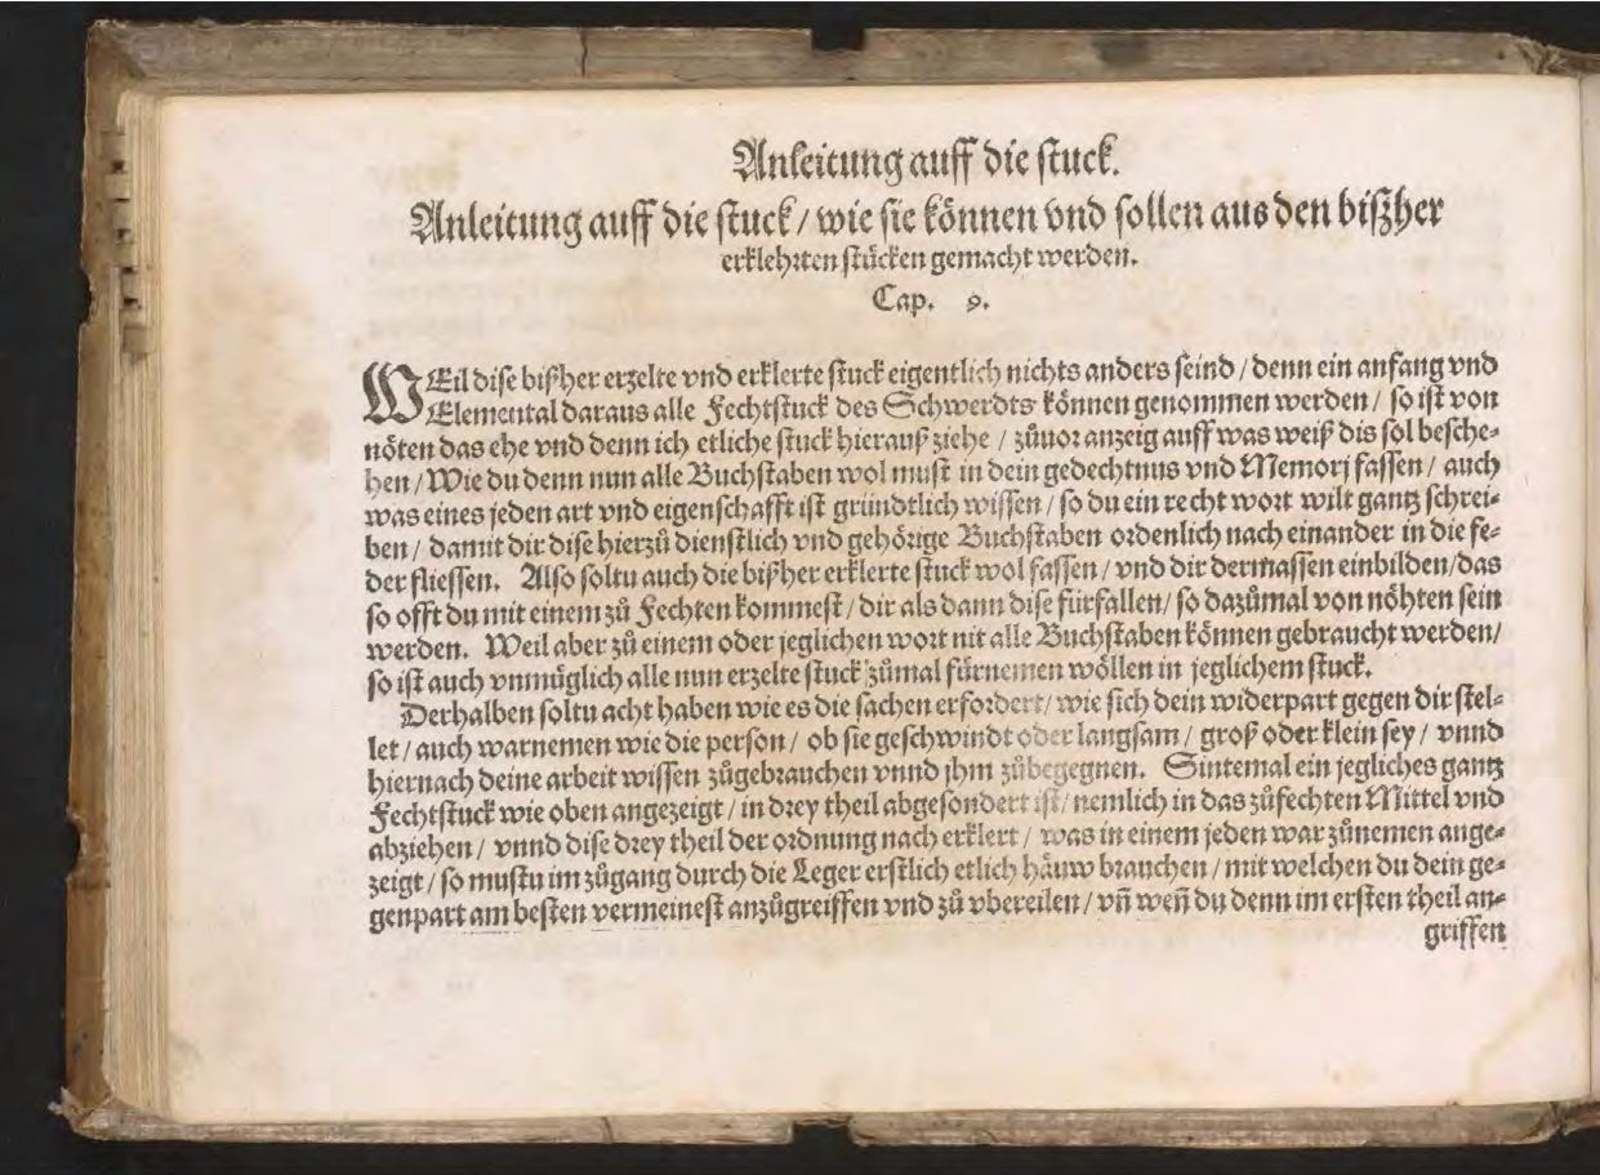 Anleitung auff die stuck.
Anleitung auff die stuck / wie sie können vnd sollen aus den bißher
erklehrten stücken gemacht werden.
Cap. 9.
WEil dise bißher erzelte vnd erklerte stuck eigentlich nichts anders seind / denn ein anfang vnd
Elemental daraus alle Fechtstuck des Schwerdts können genommen werden / so ist von
nöten das ehe vnd denn ich etliche stuck hierauß ziehe / zůuor anzeig auff was weiß dis sol besche-
hen / Wie du denn nun alle Buchstaben wol must in dein gedechtnus vnd Memorj fassen / auch
was eines jeden art vnd eigenschafft ist gründtlich wissen / so du ein recht wort wilt gantz schrei-
ben / damit dir dise hierzů dienstlich vnd gehörige Buchstaben ordenlich nach einander in die fe-
der fliessen. Also soltu auch die bißher erklerte stuck wol fassen / vnd dir dermassen einbilden / das
so offt du mit einem zů Fechten kommest / dir als dann dise fürfallen / so dazůmal von nöhten sein
werden. Weil aber zů einem oder jeglichen wort nit alle Buchstaben können gebraucht werden /
so ist auch vnmüglich alle nun erzelte stuck zůmal fürnemen wöllen in jeglichem stuck.
Derhalben soltu acht haben wie es die sachen erfordert / wie sich dein widerpart gegen dir stel-
let / auch warnemen wie die person / ob sie geschwindt oder langsam / groß oder klein sey / vnnd
hiernach deine arbeit wissen zůgebrauchen vnnd jhm zůbegegnen. Sintemal ein jegliches gantz
Fechtstuck wie oben angezeigt / in drey theil abgesondert ist / nemlich in das zůfechten Mittel vnd
abziehen / vnnd dise drey theil der ordnung nach erklert / was in einem jeden war zůnemen ange-
zeigt / so mustu im zůgang durch die Leger erstlich etlich häuw brauchen / mit welchen du dein ge-
genpart am besten vermeinest anzůgreiffen vnd zů vbereilen / vñ weñ du denn im ersten theil an-
griffen